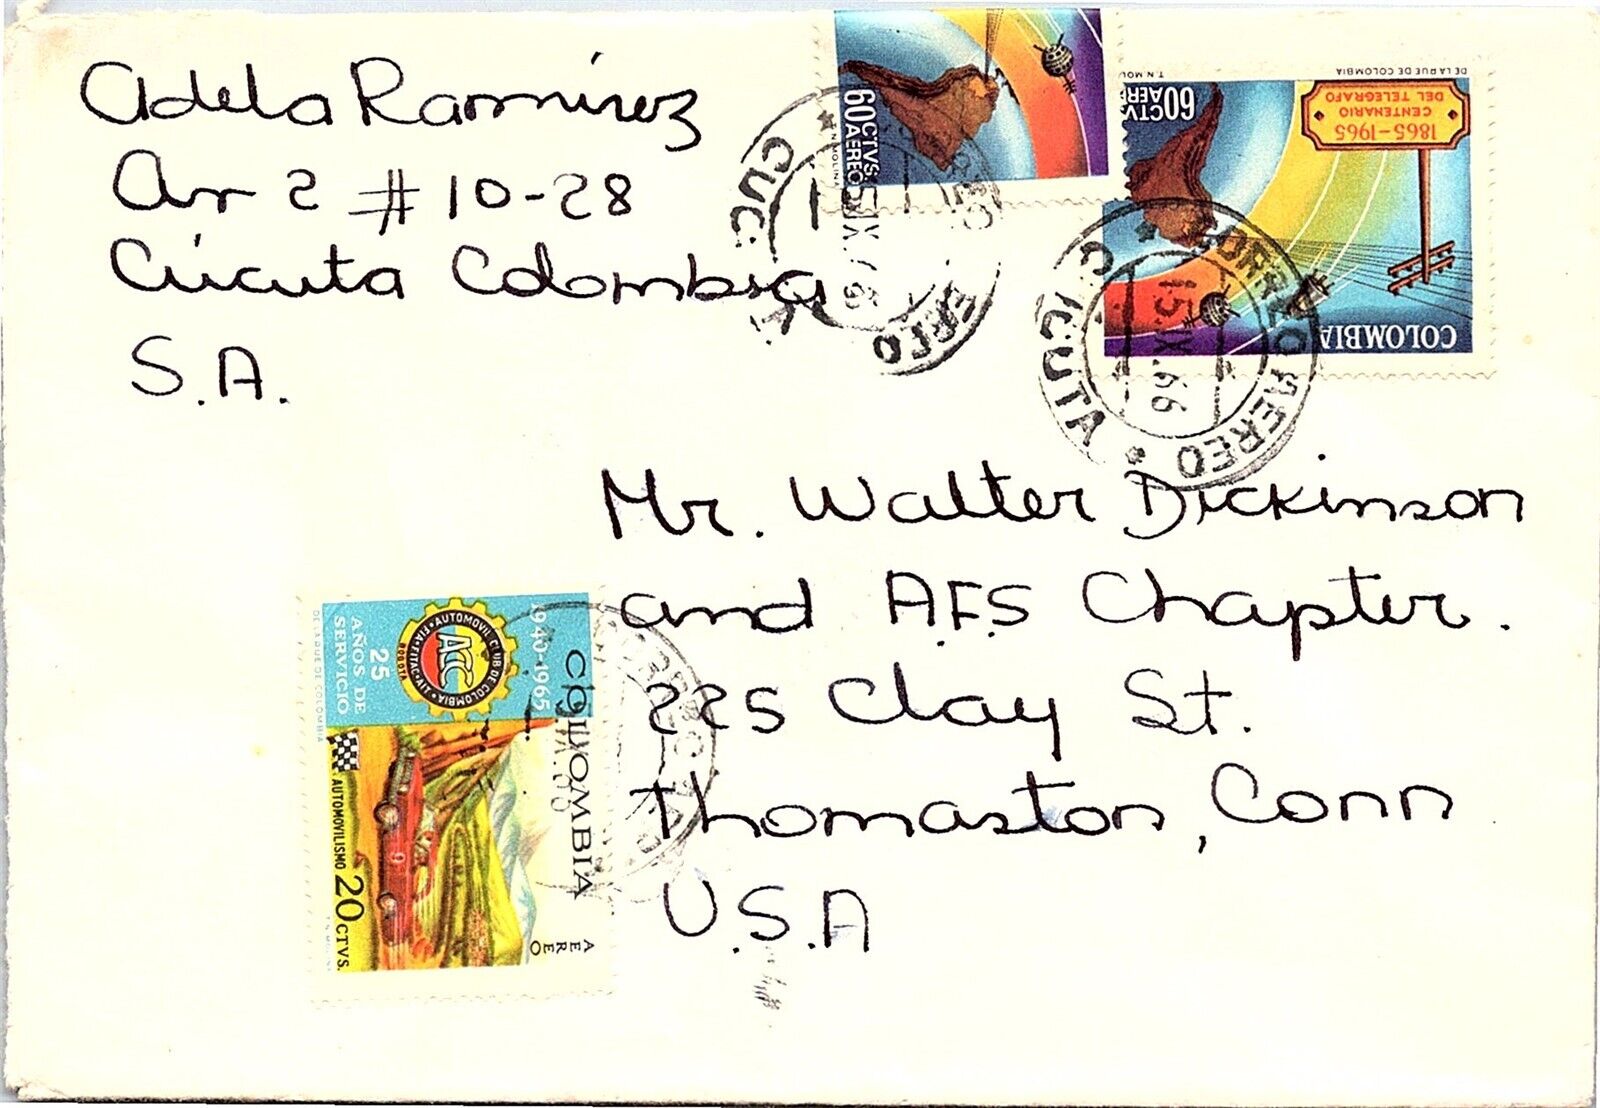 Adela Ramírez
Av 2 # 10-28
Cúcuta Colombia
S.A.
60 CTVS
AEREO
T.N. MOLINA
DE LA RUE DE COLOMBIA
60 CTVS
AER
T.N. MOL
1865-1965
CENTENARIO
DEL TELEGRAFO
COLOMBIA
CORREO AEREO
CUCUTA
15.IX.66
Mr. Walter Dickinson
and A.F.S Chapter.
225 Clay St.
Thomaston, Conn
U.S.A
1940-1965
AUTOMOVIL CLUB DE COLOMBIA
FIA-FITAC-AIT
BOGOTA
ACC
25
AÑOS DE
SERVICIO
DE LA RUE DE COLOMBIA
COLOMBIA
AEREO
9
AUTOMOVILISMO 20 CTVS.